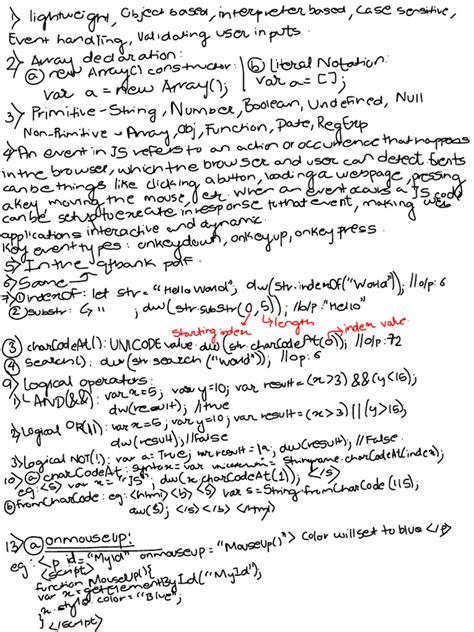 1) lightweight, Object based, interpreter based, case sensitive,
Event handling, Validating user inputs.
2) Array declaration:
ⓐ new Array() constructor: | ⓑ literal Notation:
var a = new Array(); | var a = [];
3) Primitive - String, Number, Boolean, Undefined, Null
Non-Primitive - Array, Obj, Function, Date, RegExp
4) An event in JS refers to an action or occurrence that happens
in the browser, which the browser and user can detect. Events
can be things like clicking a button, loading a webpage, pressing
a key, moving the mouse, etc. When an event occurs a JS code
can be setup to execute in response to that event, making web
applications interactive and dynamic.
Key event types: onkeydown, onkeyup, onkeypress.
5) In the qtbank pdf.
6) Same
7) ① indexOf: let str = "Hello World"; dw(str.indexOf("World")); //o/p: 6
② substr: " ; dw(str.substr(0,5)); //o/p: "Hello"
starting index length index value
③ charCodeAt(): UNICODE value: dw(str.charCodeAt(0)); //o/p: 72
④ search(): dw(str.search("World")); //o/p: 6
9) Logical operators:
1) L AND(&&): var x=5; var y=10; var result = (x>3) && (y<15);
dw(result); //true
2) Logical OR(||): var x=5; var y=10; var result = (x>3) || (y>15);
dw(result); //False
3) Logical NOT(!): var a = True; var result = !a; dw(result); //False.
10) ⓐ charCodeAt: syntax = var = Stringname.charCodeAt(index);
eg: <s> var x = "JS"; dw(x.charCodeAt(1)); </s>
ⓑ fromCharCode: eg: <html> <b> <s> var s = String.fromCharCode(115);
dw(s); </s> </b> </html>
13) ⓐ onmouseup:
eg: <p id = "MyId" onmouseup = "MouseUp()"> Color will set to blue </p>
<script>
function MouseUp(){
var x = getElementById("MyId");
x.style.color = "Blue";
}
</script>